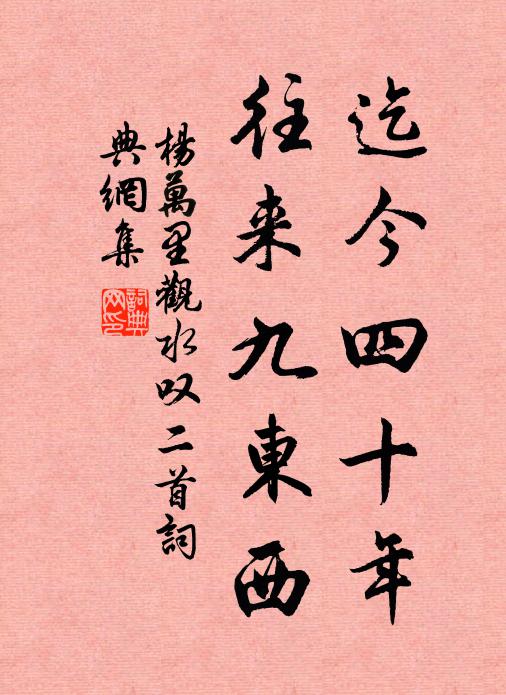 迄今四十年
往来九東西
楊萬里觀水叹二首詞
典網集
詞典
网印